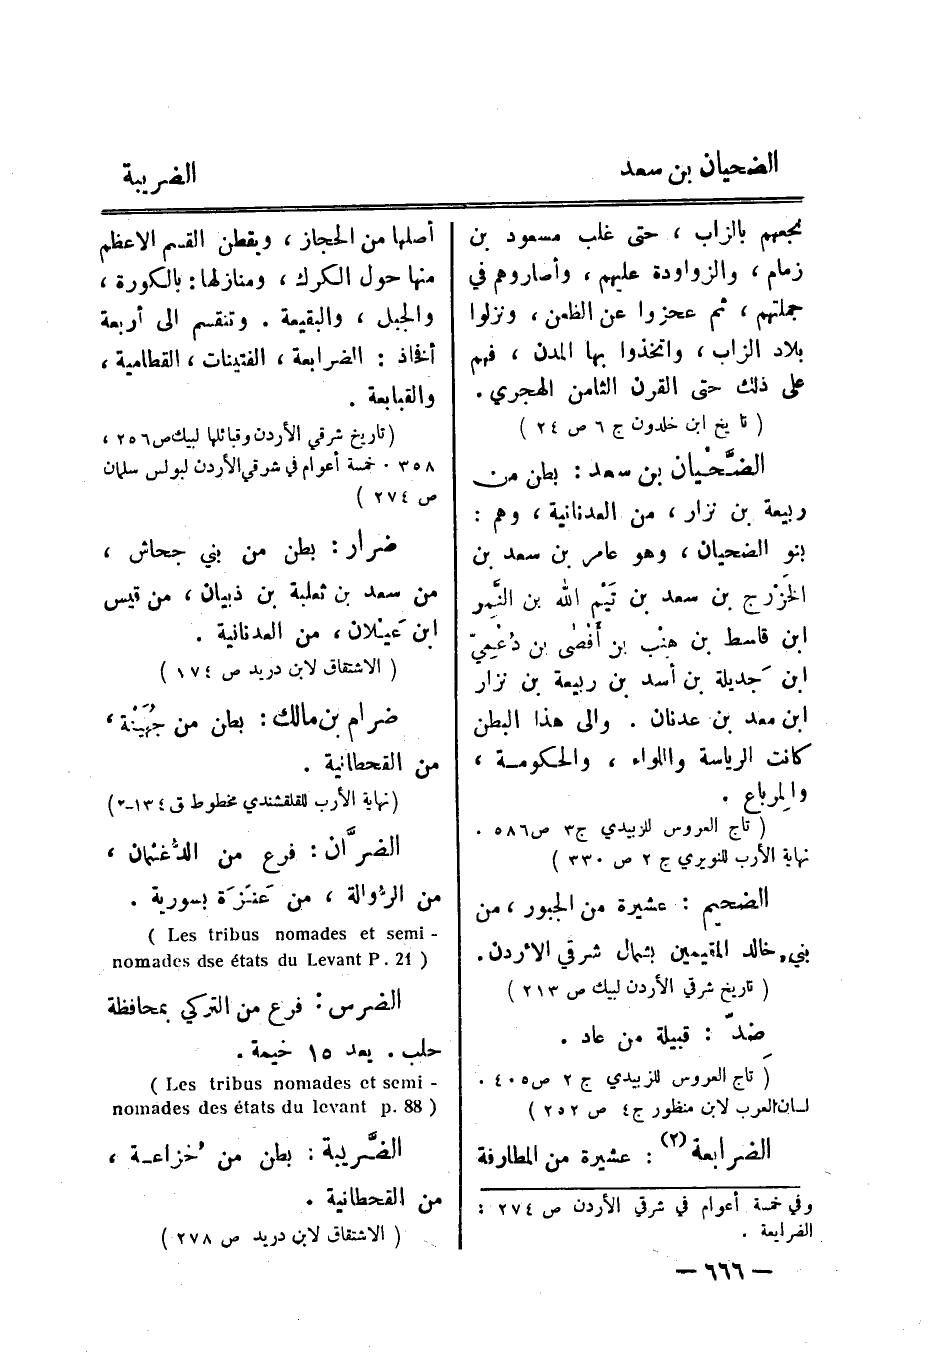 الضحيان بن سعد
الضريبة
بجمعهم بالزاب ، حتى غلب مسعود بن
زمام ، والزواودة عليهم ، وأصاروهم في
جملتهم ، ثم عجزوا عن الظعن ، ونزلوا
بلاد الزاب ، واتخذوا بها المدن ، فهم
على ذلك حتى القرن الثامن الهجري .
( تا يخ ابن خلدون ج ٦ ص ٢٤ )
الضَّحْيان بن سعد : بطن من
ربيعة بن نزار ، من العدنانية ، وهم :
بنو الضحيان ، وهو عامر بن سعد بن
الخَزْرج بن سعد بن تَيْم الله بن النَّمِر
ابن قاسط بن هِنْب بن أَفْصَى بن دُعْمِيّ
ابن جَديلة بن أسد بن ربيعة بن نزار
ابن معد بن عدنان . والى هذا البطن
كانت الرياسة واللواء ، والحكومة ،
والمِرباع .
( تاج العروس للزبيدي ج٣ ص٥٨٦ .
نهاية الأرب للنويري ج ٢ ص ٣٣٠ )
الضحيم : عشيرة من الجبور ، من
بني خالد المقيمين بشمال شرقي الأردن .
( تاريخ شرقي الأردن لبيك ص ٢١٣ )
ضِدّ : قبيلة من عاد .
( تاج العروس للزبيدي ج ٢ ص٤٠٥ .
لسان العرب لابن منظور ج٤ ص ٢٥٢ )
الضرابعة (٢) : عشيرة من المطارفة
وفي خمسة أعوام في شرقي الأردن ص ٢٧٤ :
الضرايعة .
أصلها من الحجاز ، ويقطن القسم الاعظم
منها حول الكرك ، ومنازلها : بالكورة ،
والجبل ، والبقيعة . وتنقسم الى أربعة
أفخاذ : الضرابعة ، الفتينات ، القطامية ،
والقبابعة .
(تاريخ شرقي الأردن وقبائلها لبيك ص٢٥٦ ،
٣٥٨ . خمسة أعوام في شرقي الأردن لبولس سلمان
ص ٢٧٤ )
ضرار : بطن من بني جحاش ،
من سعد بن ثعلبة بن ذبيان ، من قيس
ابن عَيْلان ، من العدنانية .
( الاشتقاق لابن دريد ص ١٧٤ )
ضرام بن مالك : بطن من جُهَيْنَة ،
من القحطانية .
(نهاية الأرب للقلقشندي مخطوط ق ١٣٤-٢)
الضرَّان : فرع من الدُّغْمان ،
من الرُّوالة ، من عَنَزَة بسورية .
( Les tribus nomades et semi -
nomades dse états du Levant P. 21 )
الضرس : فرع من التركي بمحافظة
حلب . يعد ١٥ خيمة .
( Les tribus nomades et semi -
nomades des états du levant p. 88 )
الضَّريبة : بطن من خُزاعة ،
من القحطانية .
( الاشتقاق لابن دريد ص ٢٧٨ )
— ٦٦٦ —